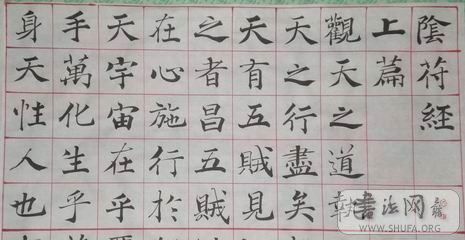 陰苻經
上篇
觀天之道執
天之行盡矣
天有五賊見
之者昌五賊
在心施行於
天宇宙在乎
手萬化生乎
身天性人也
書法网
WWW.SHUFA.ORG